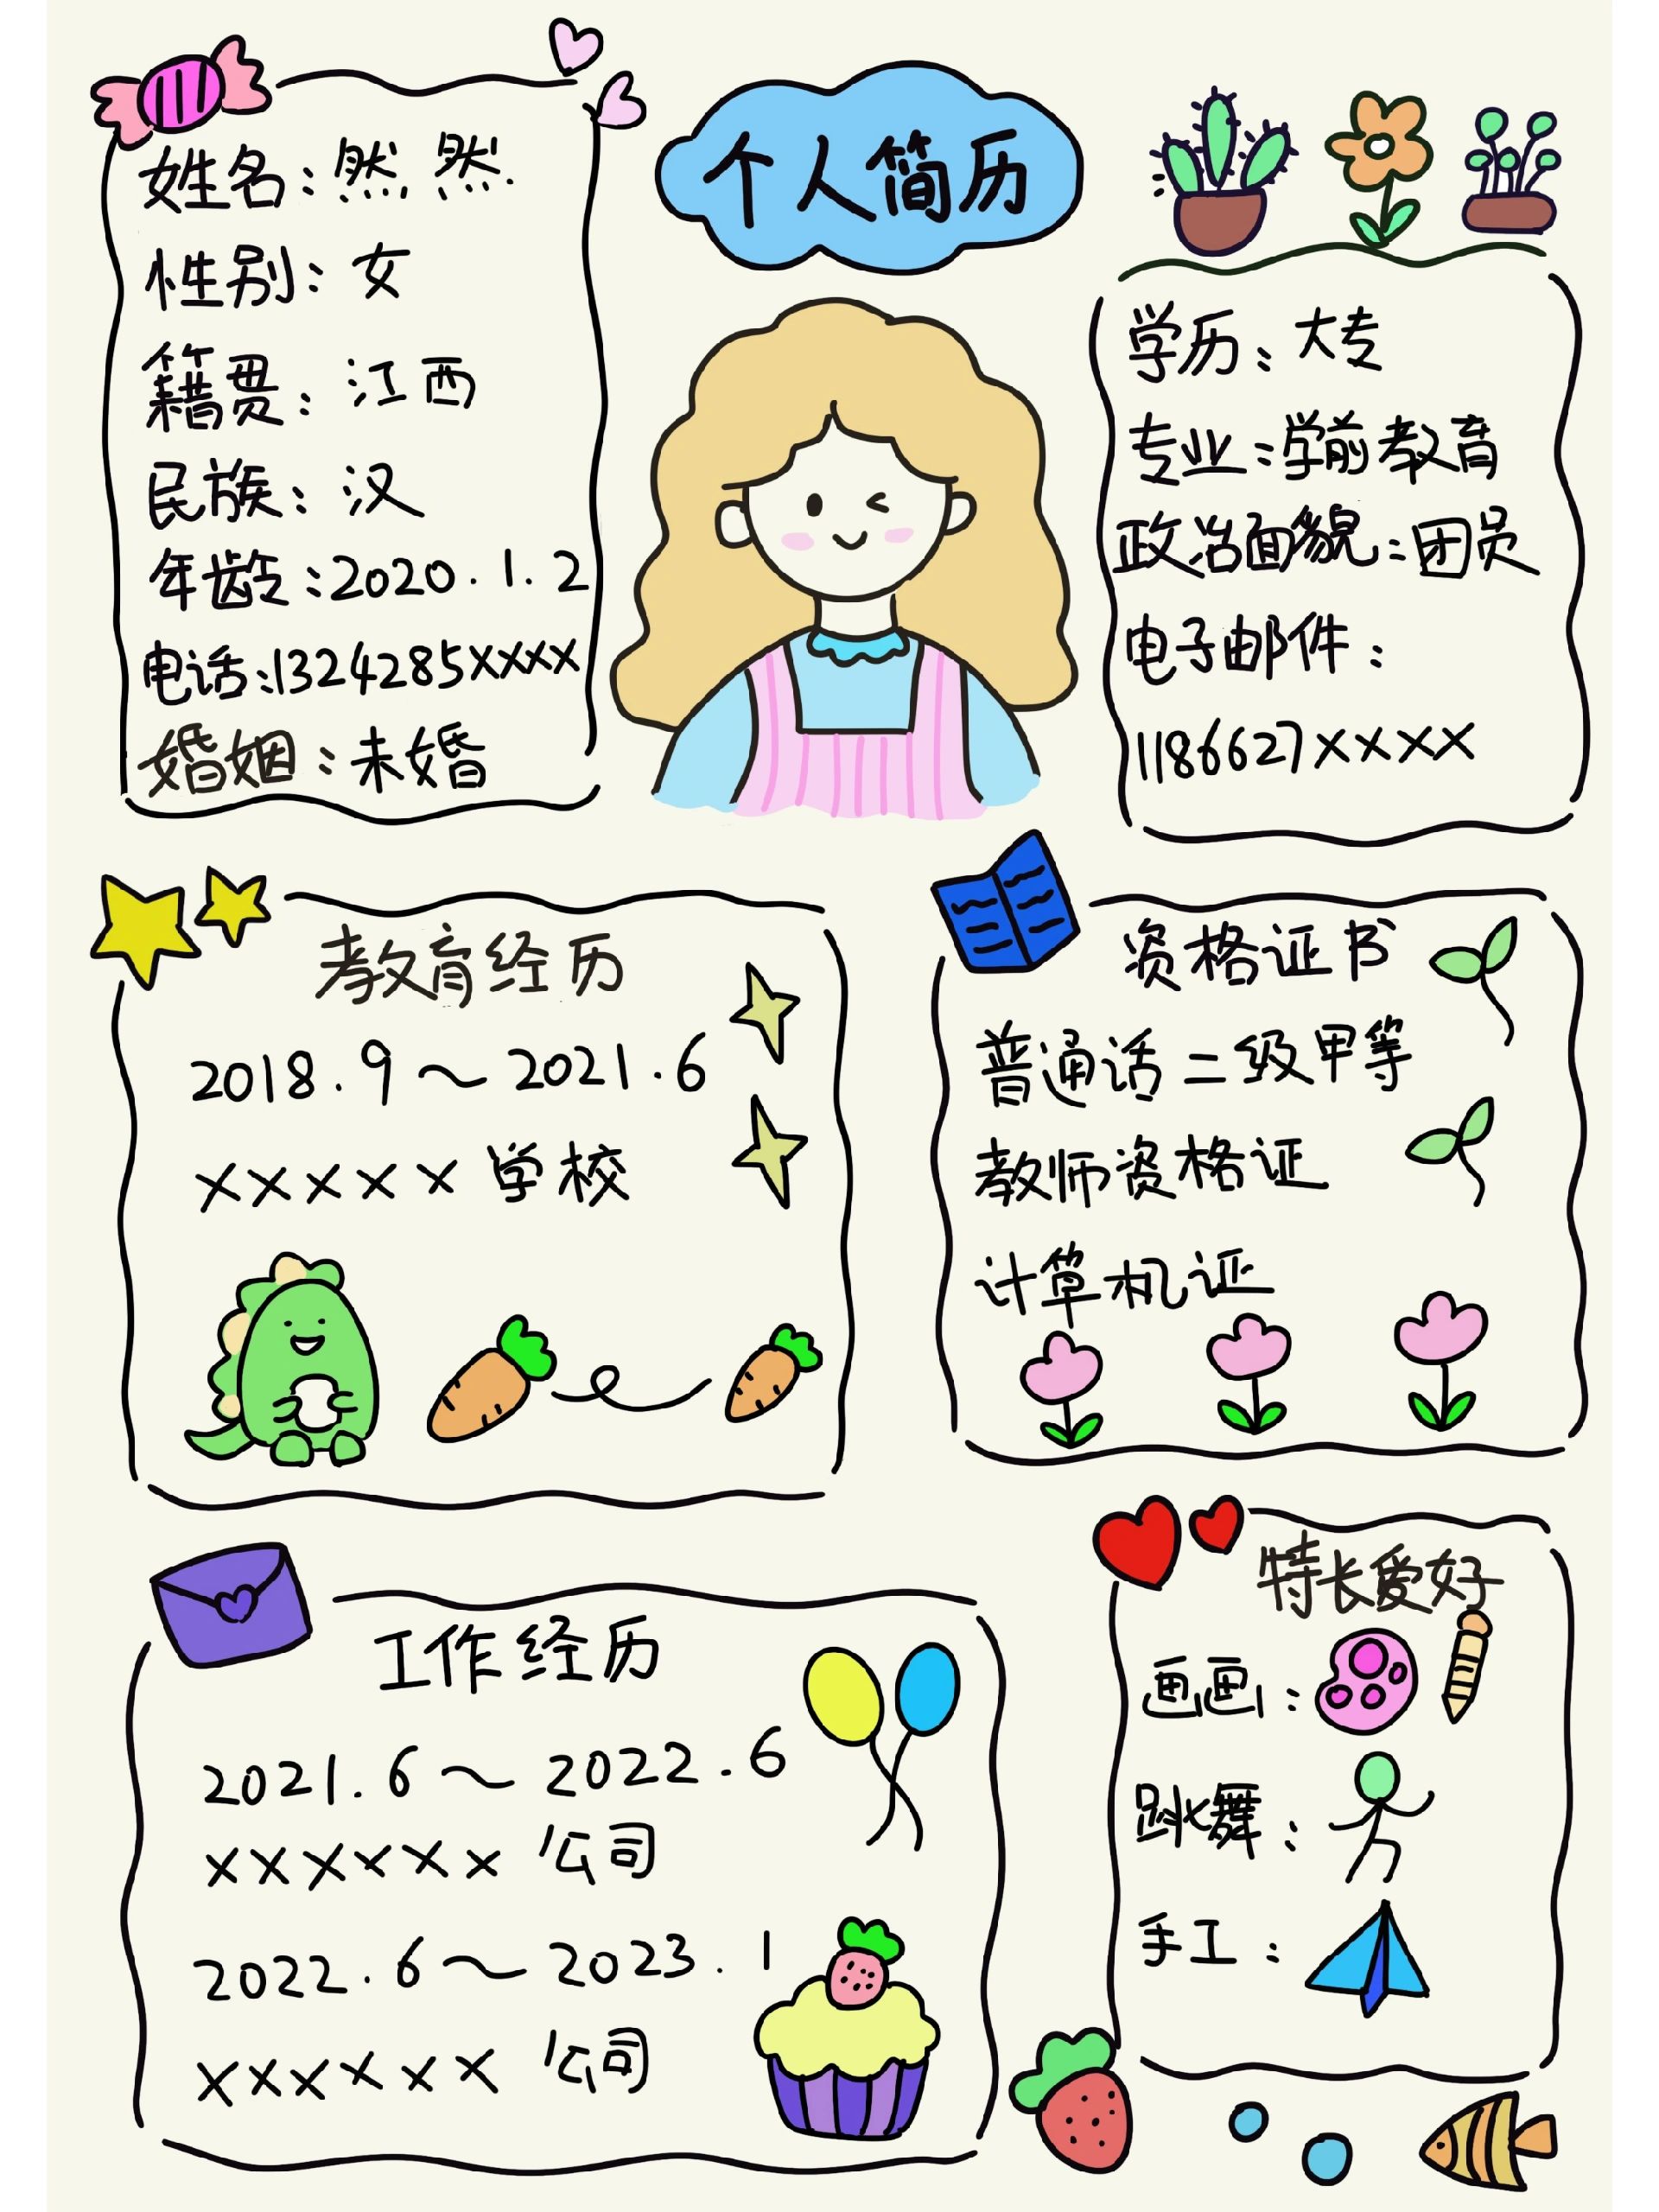 个人简历
姓名:然然
性别:女
籍贯:江西
民族:汉
年龄:2020.1.2
电话:1324285xxxx
婚姻:未婚
学历:大专
专业:学前教育
政治面貌:团员
电子邮件:
1186627xxxx
教育经历
2018.9~2021.6
xxxxx学校
资格证书
普通话二级甲等
教师资格证
计算机证
工作经历
2021.6~2022.6
xxxxxx公司
2022.6~2023.1
xxxxxx公司
特长爱好
画画:
跳舞:
手工: